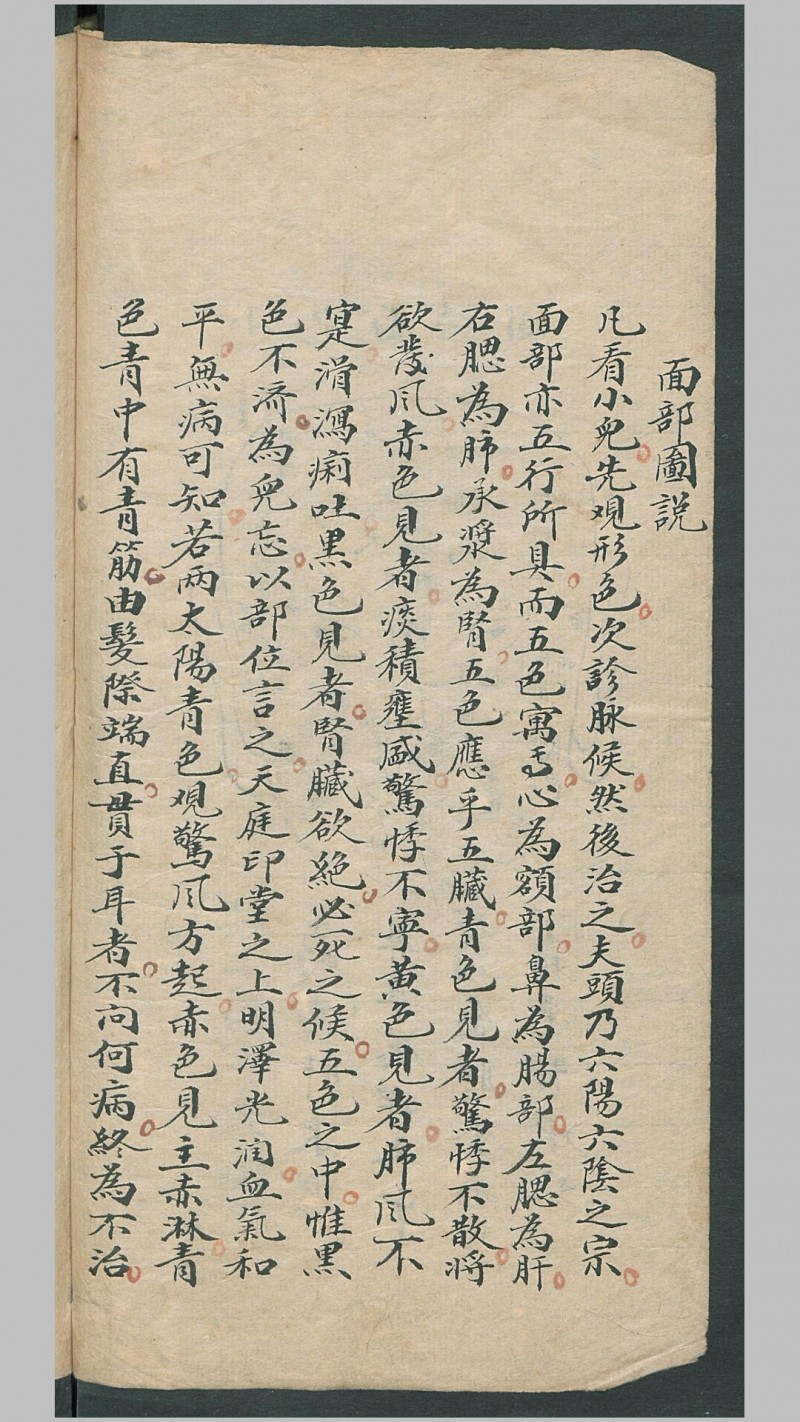 面部圖說
凡看小兒先观形色次診脉候然後治之夫頭乃六陽六陰之宗
面部亦五行所具而五色寓焉心為額部鼻為腸部左腮為肝
右腮為肺承漿為腎五色應乎五臟青色見者驚悸不散將
欲發风赤色見者痰積壅盛驚悸不寧黃色見者肺风不
寔滑瀉痢吐黑色見者腎臟欲絕必死之候五色之中惟黑
色不済為兒忘以部位言之天庭印堂之上明澤光润血氣和
平無病可知若两太陽青色观驚风方起赤色見主赤淋青
色青中有青筋由髮際端直貫于耳者不问何病終為不治